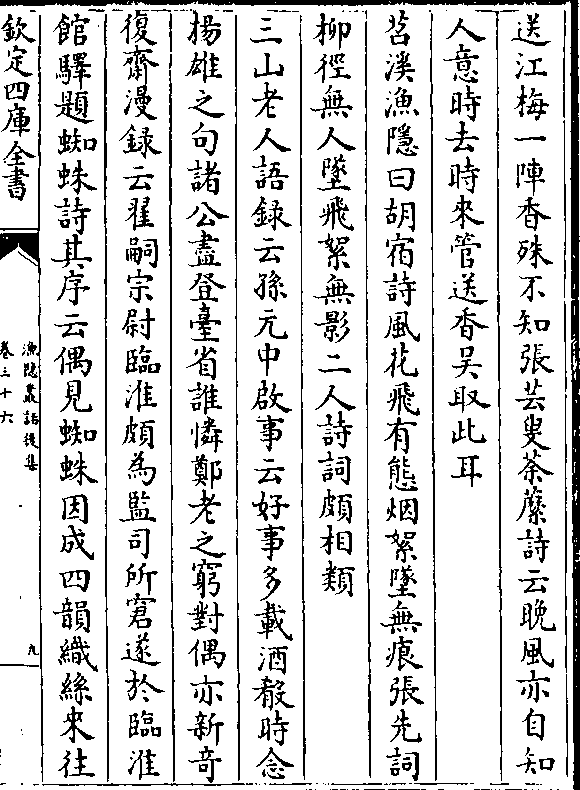 送江梅一陣香殊不知張芸叟荼蘼詩云晚風亦自知
人意時去時來管送香吳取此耳
苕溪漁隱曰胡宿詩風花飛有態烟絮墜無痕張先詞
柳徑無人墜飛絮無影二人詩詞頗相類
三山老人語録云孫元中啟事云好事多載酒殽時念
揚雄之句諸公盡登臺省誰憐鄭老之窮對偶亦新竒
復齋漫録云翟嗣宗尉臨淮頗為監司所窘遂於臨淮
館驛題蜘蛛詩其序云偶見蜘蛛因成四韻織絲來往
欽定四庫全書
漁隱叢話後集
卷三十六
九